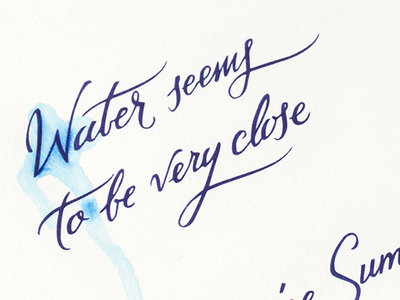 Water seems
to be very close
Sum